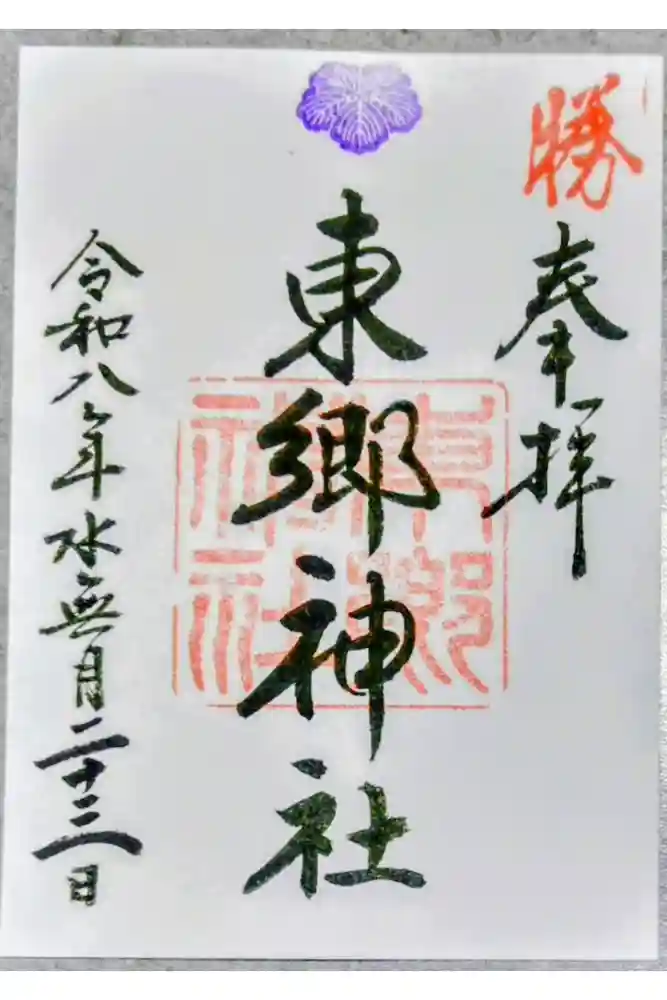 勝
奉拝
東郷神社
東郷神社
令和八年水無月二十二日